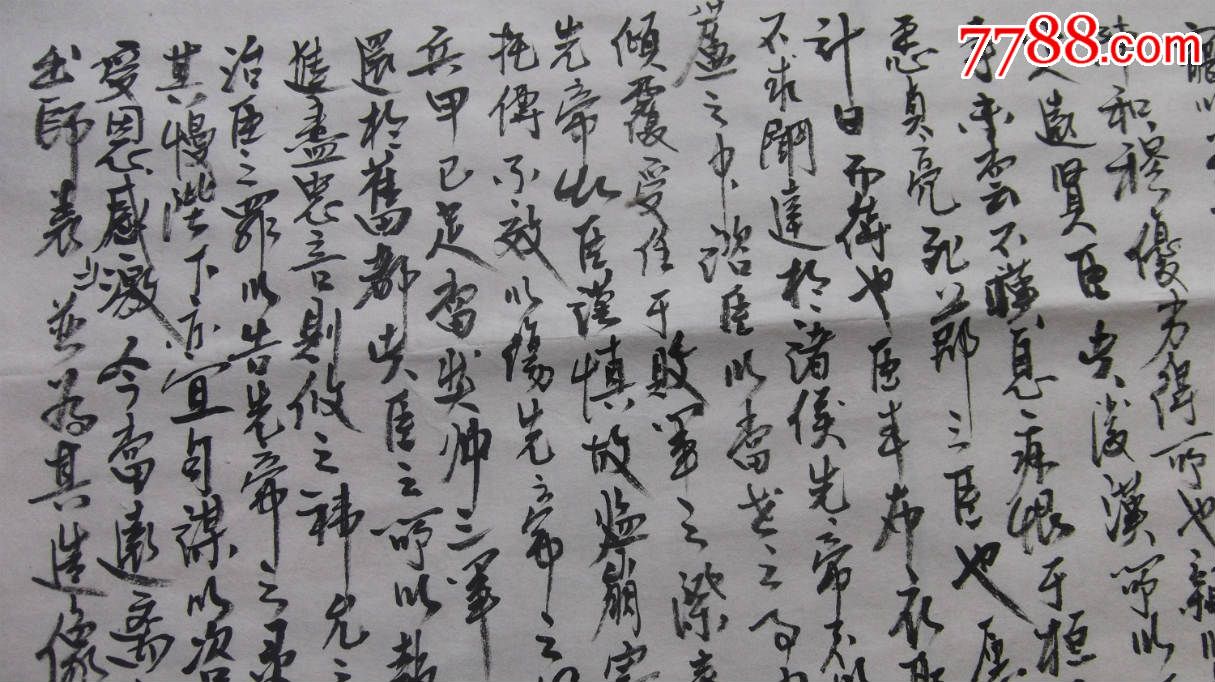 陣和穆優劣得所也親
人遠賢臣此後漢所以
事未嘗不嘆息痛恨于桓
悉貞亮死節之臣也願
計日而待也臣本布衣躬
不求聞達於諸侯先帝不以
廬之中諮臣以當世之事
傾覆受任于敗軍之際奉
先帝知臣謹慎故臨崩寄
托付不效以傷先帝之
兵甲已足當獎帥三軍
還於舊都此臣之所以報
進盡忠言則攸之禕允之
治臣之罪以告先帝之靈
其慢陛下亦宜自謀以咨
受恩感激今當遠離
出師表並為其造像
7788.com